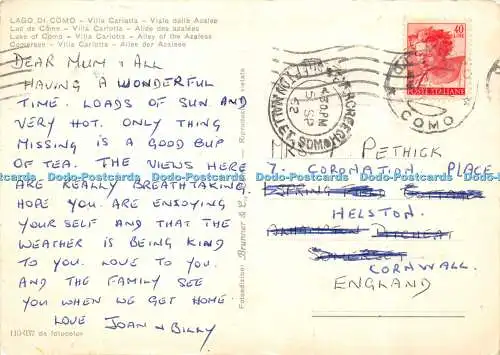 LAGO DI COMO - Villa Carlotta - Viale delle Azalee
Lac de Côme - Villa Carlotta - Allée des azalées
Lake of Como - Villa Carlotta - Alley of the Azaleas
Comersee - Villa Carlotta - Allee der Azaleen
DEAR MUM & ALL
HAVING A WONDERFUL
TIME. LOADS OF SUN AND
VERY HOT. ONLY THING
MISSING IS A GOOD CUP
OF TEA. THE VIEWS HERE
ARE REALLY BREATHTAKING.
HOPE YOU ARE ENJOYING
YOUR SELF AND THAT THE
WEATHER IS BEING KIND
TO YOU. LOVE TO YOU.
AND THE FAMILY SEE
YOU WHEN WE GET HOME.
LOVE JOAN & BILLY
110-037 da fotocolor
Fotoedizioni Brunner & C.
40
LIRE
POSTE ITALIANE
COMO
MRS PETHICK
7. CORONATION PLACE
HELSTON.
SOMERSET
CORNWALL.
ENGLAND
Dodo-Postcards Dodo-Postcards Dodo-Postcards